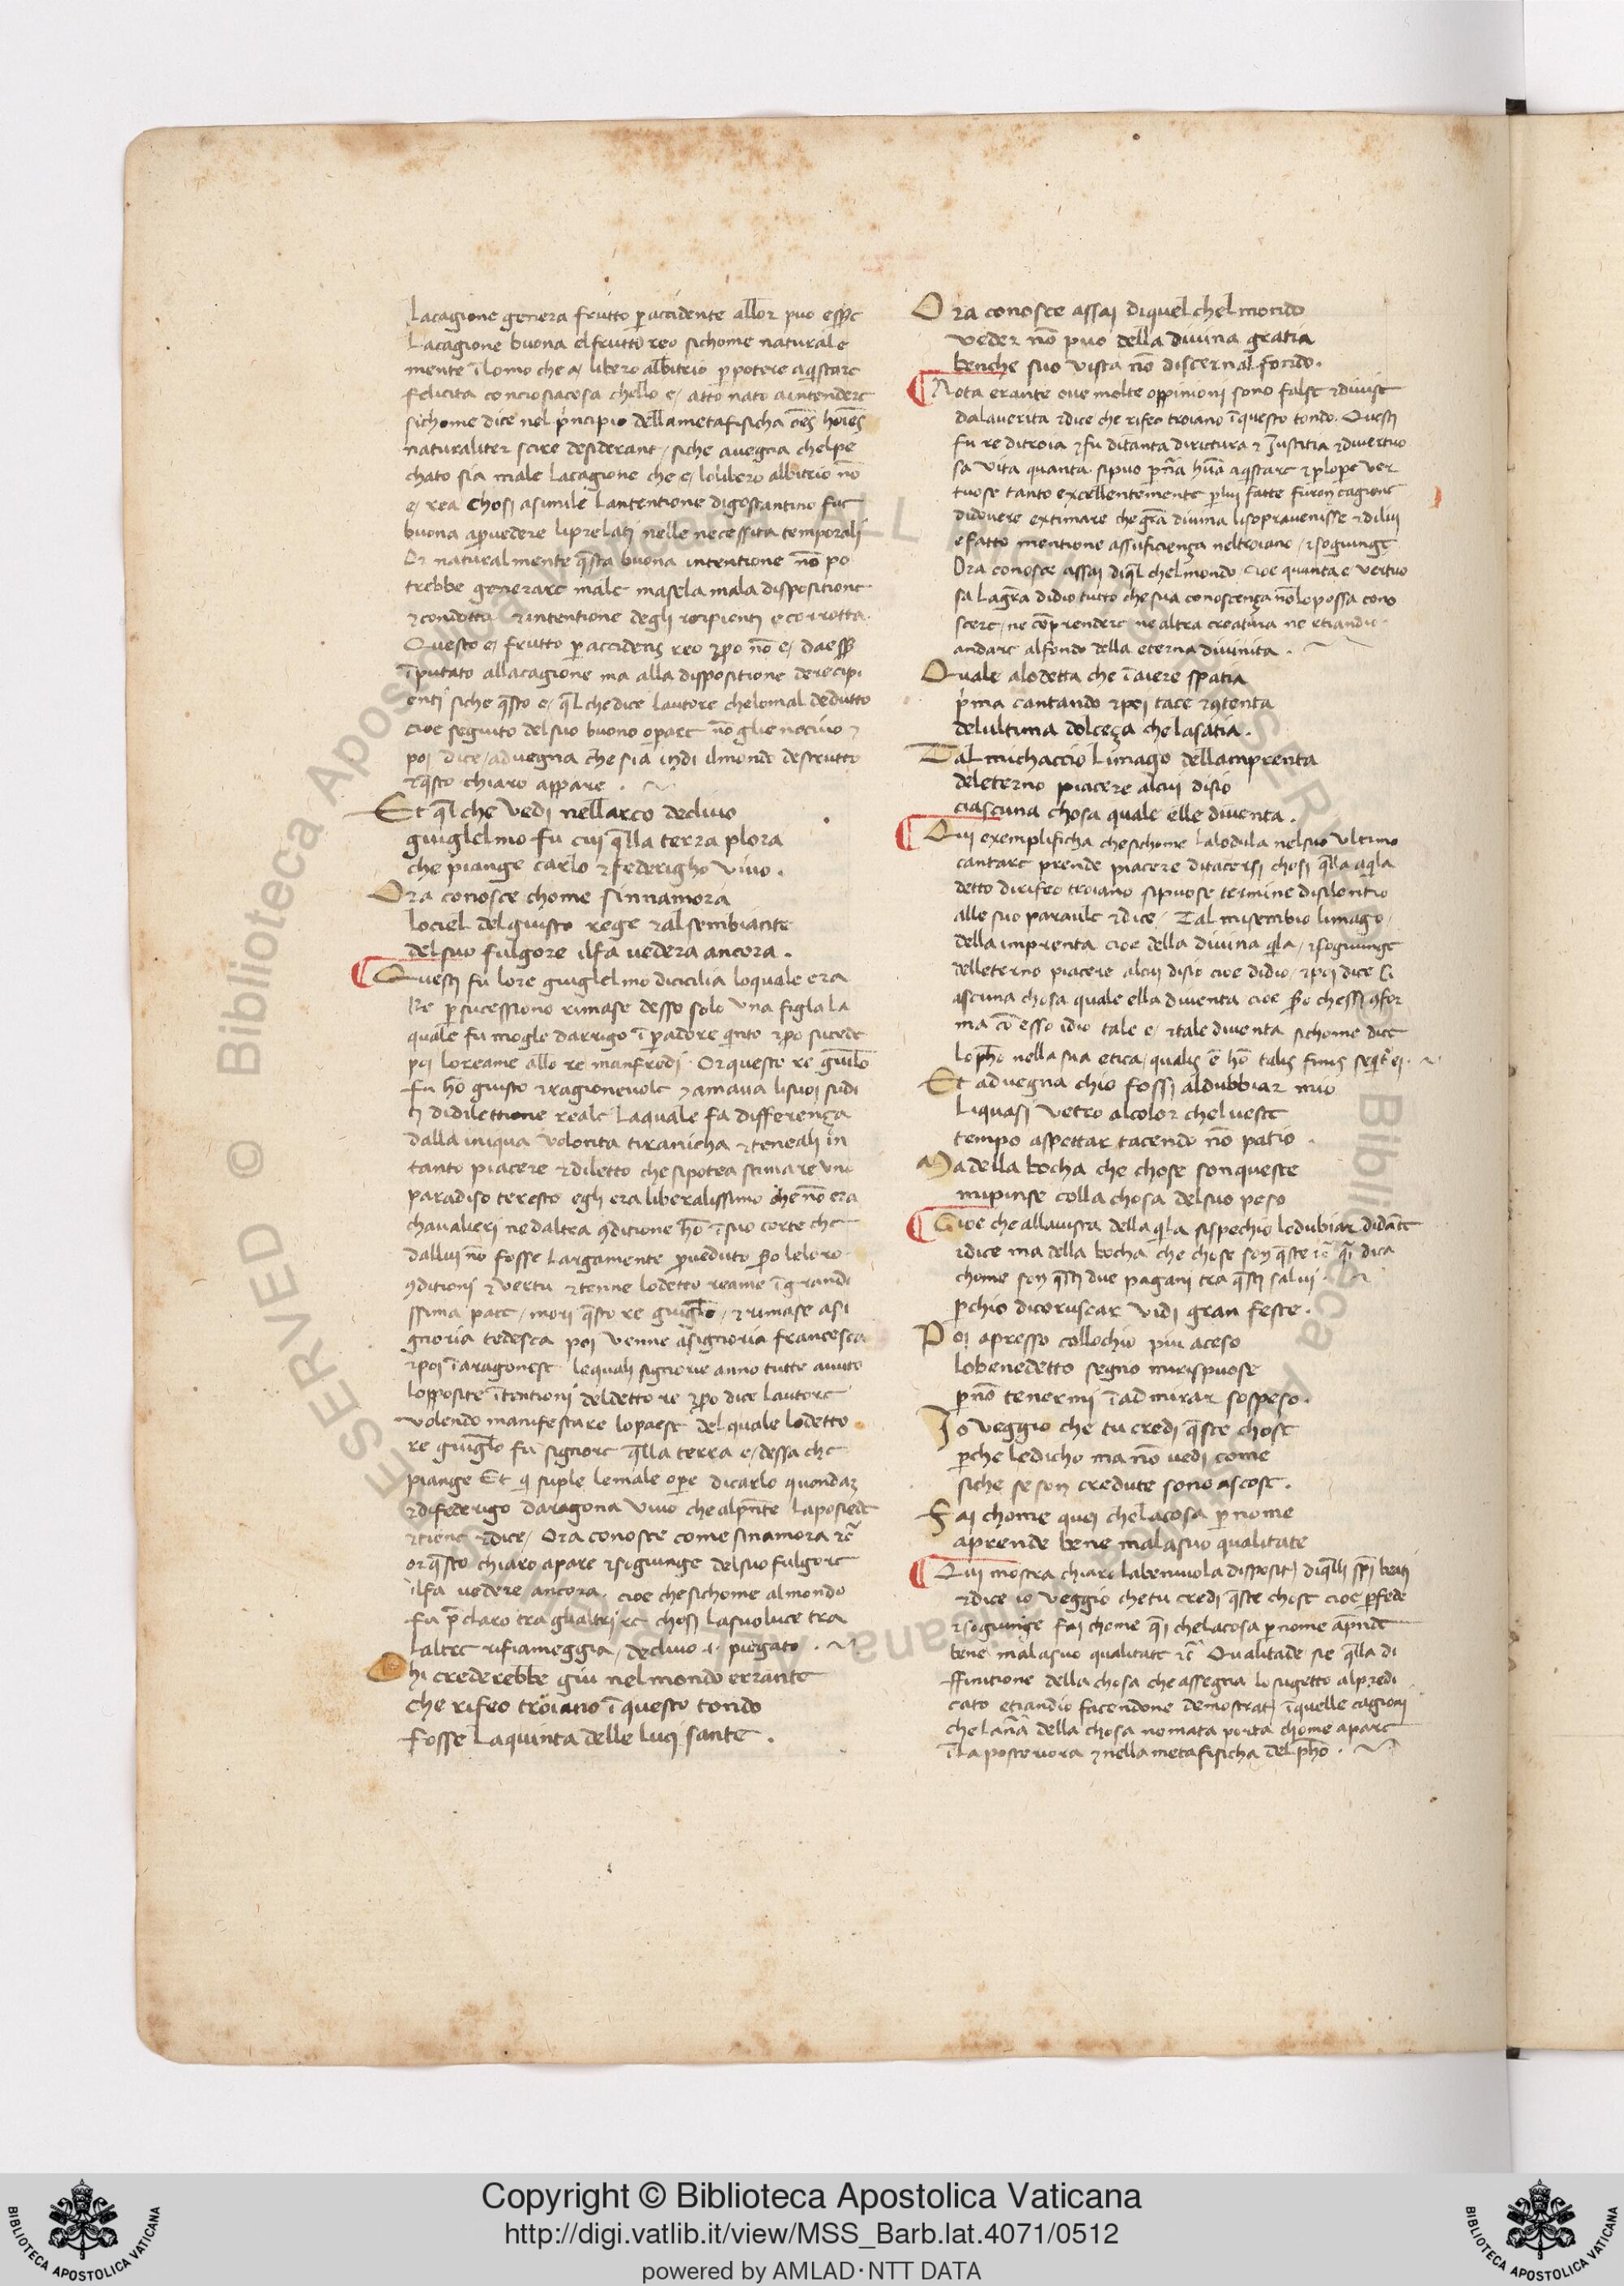 Lacagione genera frutto p accidente allor puo esse
Lacagione buona elfrutto reo sichome naturale
mente ĩ lomo che a libero albitrio p potere aqistare
felicita conciosiacosa chello e atto nato aintendere
sichome dice nel principio dellametafisicha oẽs hoiẽs
naturaliter scire desiderant / siche avegna chelpe
chato sia male Lacagione che e lolibero albitrio nõ
e rea chosi asimile Lantentione digostantino fue
buona aprvedere liprelati nelle necessita temporali
Et naturalmente q̃sta buona intentione nõ po
trebbe generare male masela mala dispositione
⁊condotta ⁊intentione degli recipienti e corrotta.
Questo e frutto p accidens reo ⁊po nõ e daesse
ĩputato allacagione ma alla dispositione derecipi
enti siche q̃sto e q̃l che dice lautore chelomal dedutto
cioe seguito delsuo buono operare nõ glie nocivo ⁊
poi dice / advegna che sia indi ilmondo destrutto
⁊q̃sto chiaro appare .
Et q̃l che vedi nellarco declivo
guiglelmo fu cui q̃lla terra plora
che piange carlo ⁊federigho vivo .
Ora conosce chome sinnamora
lociel delgiusto rege ⁊al sembiante
delsuo fulgore ilfa vedera ancora .
Questi fu lore guiglelmo dicicilia loquale era
Re p sucessiono rimase desso solo una figla la
quale fu mogle darrigo ĩ padore qinto ⁊po sucede
poi loreame allo re manfredi . Or questo re guilo
fu hõ giusto ⁊ragionevole ⁊ amava lisuoi sudi
ti didilettione reale Laquale fa differença
dalla iniqua volonta tiranicha ⁊teneali in
tanto piacere ⁊diletto che sipotea stimare uno
paradiso teresto egli era liberalissimo che nõ era
chavalieri nedaltra 9ditione hõ ĩ suo corte che
dallui nõ fosse Largamente proveduto po leloro
9ditioni ⁊ vertu ⁊tenne lodetto reame ĩ grandi
ssima pace / mori q̃sto re guiglo / ⁊rimase asi
gnoria tedesca poi venne asignoria francesca
⁊poi ĩ aragonese lequali signorie anno tutte avuto
lopposite ĩtentioni deldetto re ⁊po dice lautore
volendo manifestare lopaese del quale lodetto
re guiglo fu signore q̃lla terra e dessa che
piange Et q suple lemale ope dicarlo quondaz
⁊difederigo daragona vivo che alpñte laposiede
⁊tiene ⁊dice / Ora conosce come sinamora ⁊c̃
or q̃sto chiaro apare ⁊sogiunge delsuo fulgore
ilfa vedere ancora . cioe chesichome almondo
fu p̃claro tra glialtri re chosi lasuoluce tra
laltre rifiameggia / declivo .i. piegato .
Chi crederebbe giu nelmondo errante
che rifeo troiano ĩ questo tondo
fosse Laquinta delle luci sante .
Ora conosce assai diquel chelmondo
veder nõ puo della divina gratia
benche suo vista nõ discernal fondo .
Nota erante ove molte oppinioni sono false ⁊divise
dalaverita ⁊dice che rifeo troiano ĩ questo tondo . Questi
fu re ditroia ⁊fu ditanta dirictura ⁊ Justitia ⁊divertuo
sa vita quanta sipuo p nã hũa aqistare ⁊p lope ver
tuose tanto excellentemente p lui fatte furon cagione
didovere extimare che grã divina lisopravenisse ⁊dilui
e fatto mentione assuficiença neltroiano / ⁊sogiunge
Ora conosce assai diq̃l chelmondo / cioe quanta e vertuo
sa Lagrã didio tutto che sua conoscença nõlo possa cono
scere / ne cõprendere ne altra creatura ne etiandio
andare alfondo della eterna divinita .
Quale alodetta che ĩ aiere spatia
p̃ma cantando ⁊poi tace ⁊9tenta
delultima dolceça chelasatia .
Tal michaccio Limago dellamprenta
deleterno piacere alcui disio
ciascuna chosa quale elle diventa .
Qui exemplificha chesichome lalodula nelsuo ultimo
cantare prende piacere ditacersi chosi q̃lla aqla
detto dirifeo troiano sipuose termine disilentio
alle suo paraule ⁊dice / Tal misembio limago /
della imprenta cioe della divina qla / ⁊sogiunge
delleterno piacere alcui disio cioe didio / ⁊poi dice ci
ascuna chosa quale ella diventa cioe po chessi 9for
ma cõ esso idio tale e ⁊tale diventa sichome dice
Lopho nella sua etica / qualis ẽ hõ talis finis seqt ei .
Et advegna chio fossi aldubbiar mio
Liquasi vetro alcolor chelveste
tempo aspettar tacendo nõ patio .
Ma della bocha che chose sonqueste
mipinse colla chosa delsuo peso
Cioe che allavista della qla sispechio lodubiar didãte
⁊dice ma della bocha che chose son q̃ste ⁊c̃ q̃i dica
chome son q̃sti due pagani tra q̃sti salvi .
p chio dicoruscar vidi gran feste .
Poi apresso collochio piu aceso
lobenedetto segno mirispuose
p nõ tenermi ĩ admirar sospeso .
Io veggio che tu credi q̃ste chose
pche ledicho ma nõ vedi come
siche seson credute sono ascose .
Fai chome quei chelacosa p nome
aprende bene malasuo qualitate
Qui mostra chiaro labenivola disposit diq̃lli sp̃i beati
⁊dice io veggio chetu credi q̃ste chose cioe p fede
⁊sogiunge fai chome q̃i chelacosa p nome apñde
bene malasuo qualitate ⁊c̃ Qualitade sie q̃lla di
ffinitione della chosa che assegna lo sugetto alpredi
cato etiandio facendone demostrat ĩ quelle cagioni
che lanã della chosa nomata porta chome apare
ĩ la posteriora ⁊nella metafisicha delpho .
Copyright © Biblioteca Apostolica Vaticana
http://digi.vatlib.it/view/MSS_Barb.lat.4071/0512
powered by AMLAD·NTT DATA
BIBLIOTECA APOSTOLICA VATICANA
BIBLIOTECA APOSTOLICA VATICANA